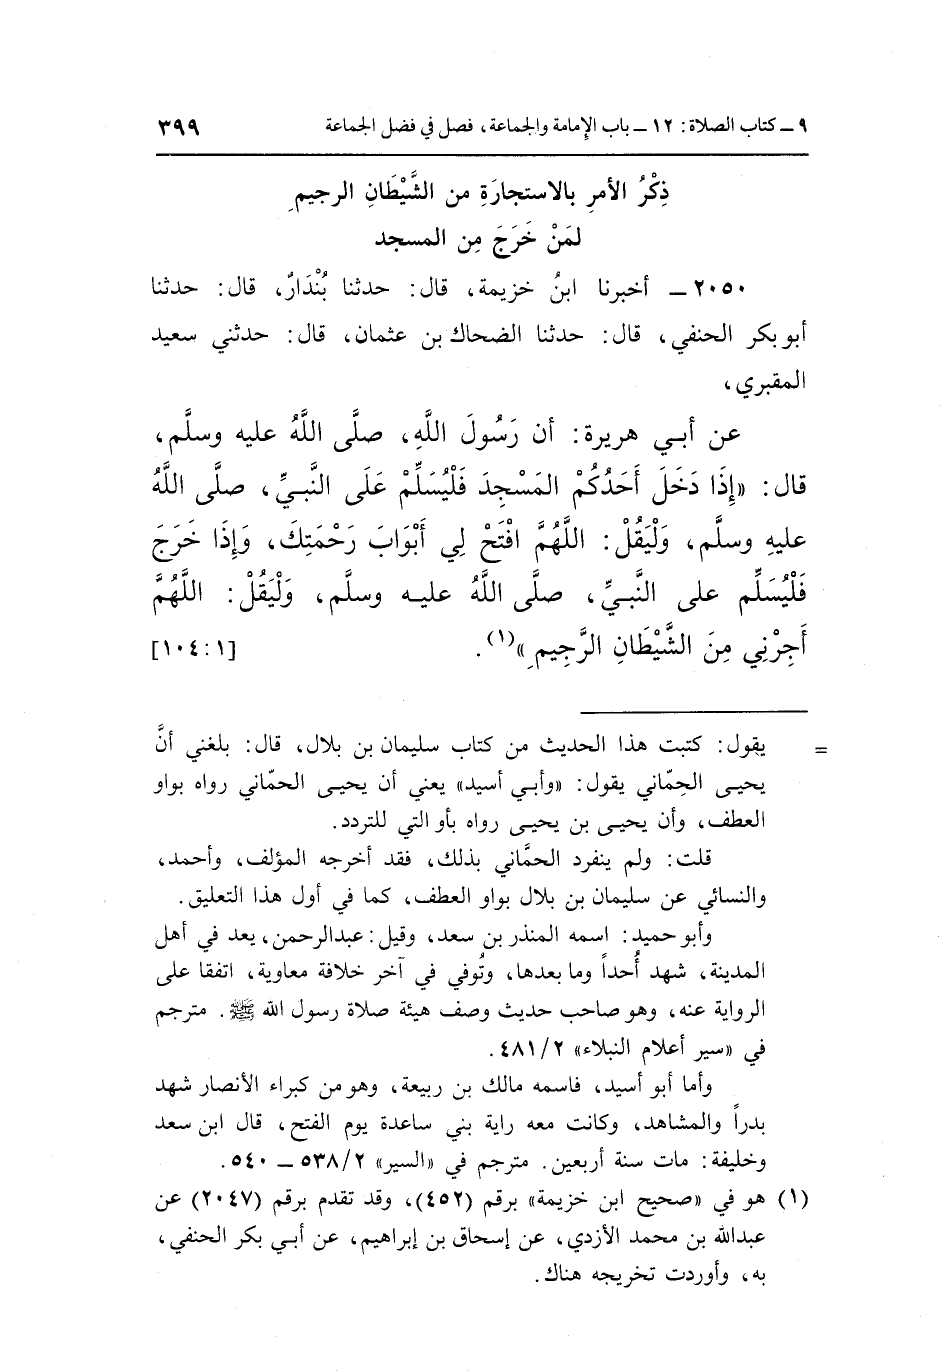 ٩ ـ كتاب الصلاة: ١٢ ـ باب الإمامة والجماعة، فصل في فضل الجماعة ٣٩٩
ذِكْرُ الأمرِ بالاستجارَةِ من الشَّيْطَانِ الرجيمِ
لمَنْ خَرَجَ مِن المسجد
٢٠٥٠ ـ أخبرنا ابنُ خزيمة، قال: حدثنا بُنْدَارٌ، قال: حدثنا
أبو بكر الحنفي، قال: حدثنا الضحاك بن عثمان، قال: حدثني سعيد
المقبري،
عن أبي هريرة: أن رَسُولَ اللَّهِ، صلَّى اللَّهُ عليه وسلَّم،
قال: «إِذَا دَخَلَ أَحَدُكُمْ المَسْجِدَ فَلْيُسَلِّمْ عَلَى النَّبيِّ، صلَّى اللَّهُ
عليهِ وسلَّم، وَلْيَقُلْ: اللَّهُمَّ افْتَحْ لِي أَبْوَابَ رَحْمَتِكَ، وَإِذَا خَرَجَ
فَلْيُسَلِّم على النَّبيِّ، صلَّى اللَّهُ عليه وسلَّم، وَلْيَقُلْ: اللَّهُمَّ
أَجِرْنِي مِنَ الشَّيْطَانِ الرَّجِيمِ»(١). [١: ١٠٤]
= يقول: كتبت هذا الحديث من كتاب سليمان بن بلال، قال: بلغني أنَّ
يحيى الحِمّاني يقول: «وأبي أسيد» يعني أن يحيى الحمّاني رواه بواو
العطف، وأن يحيى بن يحيى رواه بأو التي للتردد.
قلت: ولم ينفرد الحمَّاني بذلك، فقد أخرجه المؤلف، وأحمد،
والنسائي عن سليمان بن بلال بواو العطف، كما في أول هذا التعليق.
وأبو حميد: اسمه المنذر بن سعد، وقيل: عبدالرحمن، يعد في أهل
المدينة، شهد أُحداً وما بعدها، وتُوفي في آخر خلافة معاوية، اتفقا على
الرواية عنه، وهو صاحب حديث وصف هيئة صلاة رسول الله ﷺ. مترجم
في «سير أعلام النبلاء» ٤٨١/٢.
وأما أبو أسيد، فاسمه مالك بن ربيعة، وهو من كبراء الأنصار شهد
بدراً والمشاهد، وكانت معه راية بني ساعدة يوم الفتح، قال ابن سعد
وخليفة: مات سنة أربعين. مترجم في «السير» ٥٣٨/٢ ـ ٥٤٠.
(١) هو في «صحيح ابن خزيمة» برقم (٤٥٢)، وقد تقدم برقم (٢٠٤٧) عن
عبدالله بن محمد الأزدي، عن إسحاق بن إبراهيم، عن أبي بكر الحنفي،
به، وأوردت تخريجه هناك.